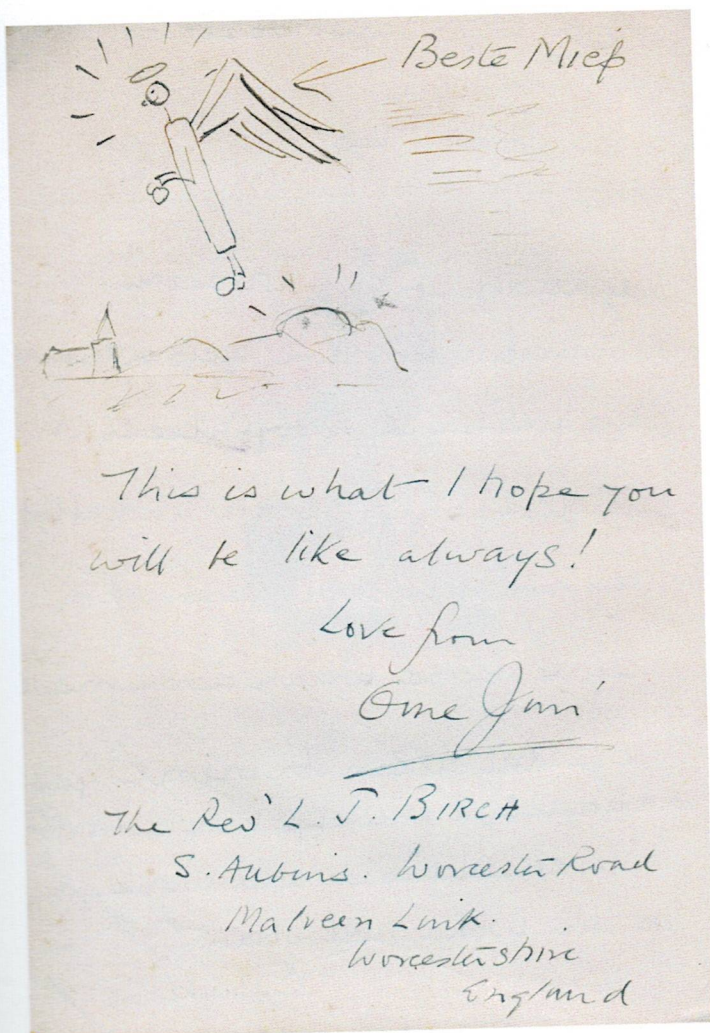 Beste Miep
This is what I hope you
will be like always!
Love from
Ome Jim
The Rev L. J. BIRCH
S. Aubins. Worcester Road
Malvern Link.
Worcestershire
England